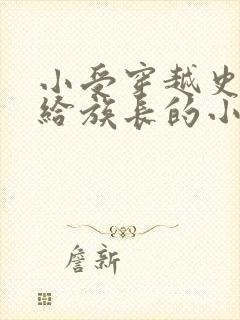 小受穿越史
给族长的小
詹新